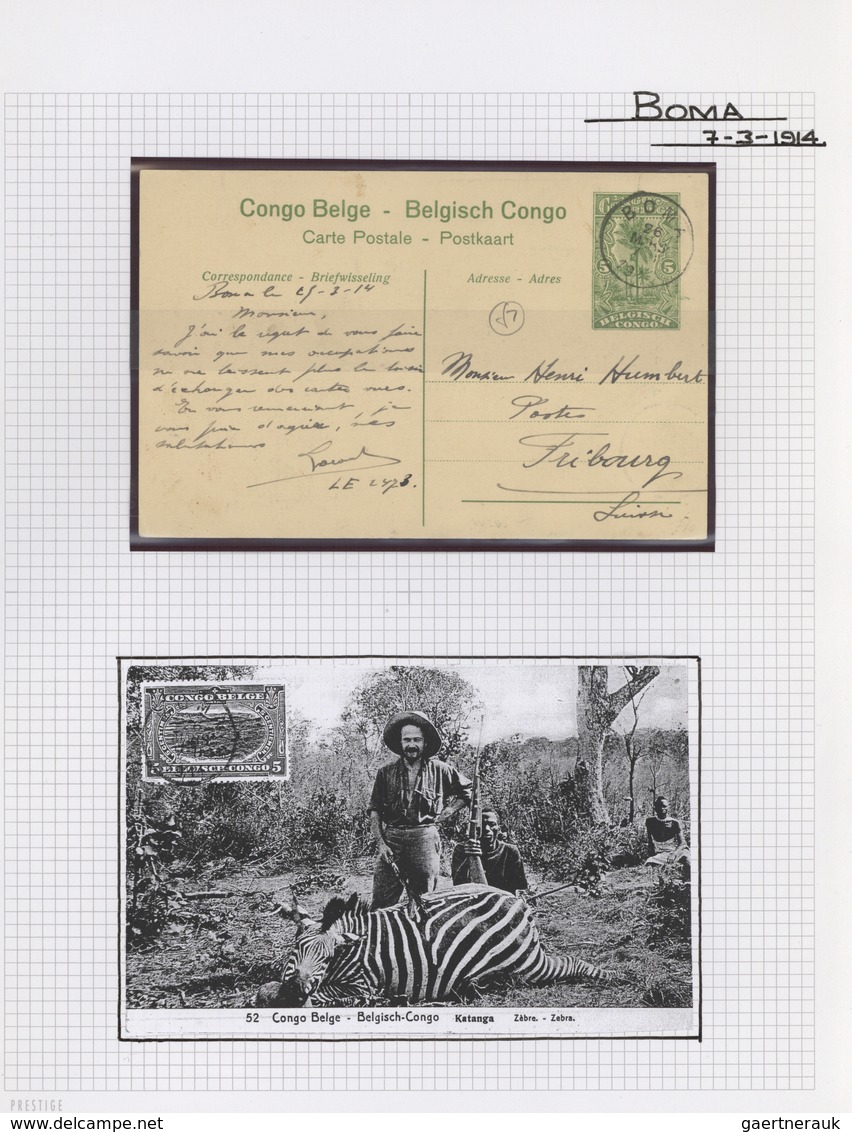 BOMA
7-3-1914.
Congo Belge - Belgisch Congo
Carte Postale - Postkaart
Correspondance - Briefwisseling
Adresse - Adres
BOMA
26
5 5
BELGISCH
CONGO
Boma le 25-3-14
Monsieur,
J'ai le regret de vous faire
savoir que mes occupations
ne me laissent plus le loisir
d'échanger des cartes vues.
En vous remerciant, je
vous prie d'agréer, mes
salutations
LE 2473.
Monsieur Henri Humbert
Postes
Fribourg
Suisse
CONGO BELGE
5 5
BELGISCH-CONGO
52 Congo Belge - Belgisch-Congo Katanga Zèbre. - Zebra.
PRESTIGE
gaertnerauk